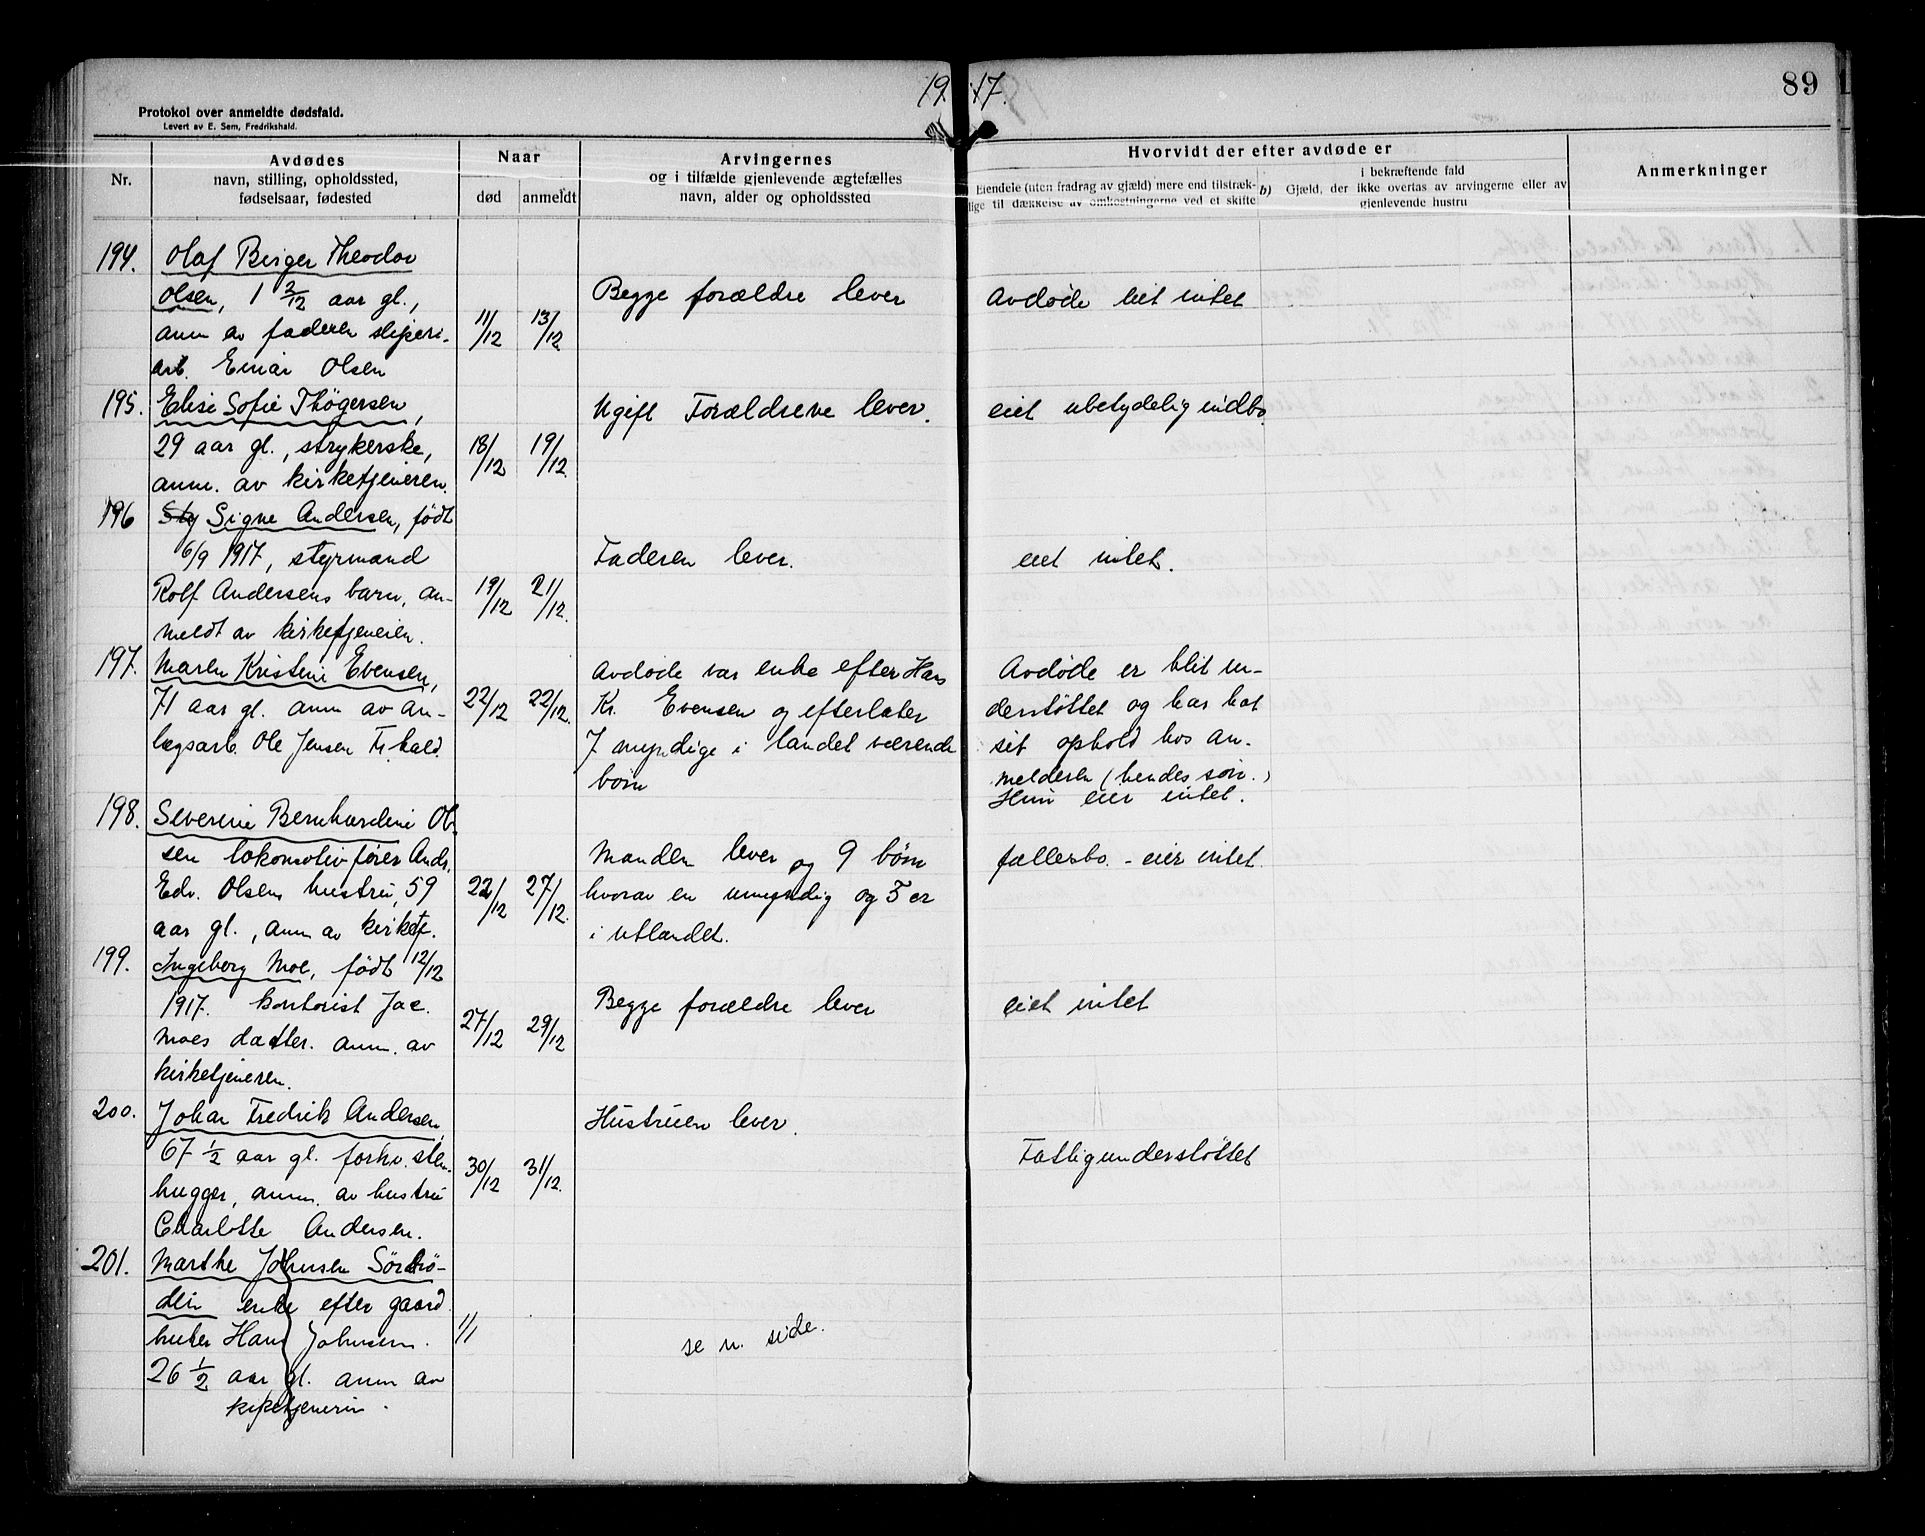 1917.
89
Protokol over anmeldte dødsfald.
Levert av E. Sem, Fredrikshald.
Nr.
Avdødes
navn, stilling, opholdssted,
fødselsaar, fødested
Naar
død
anmeldt
Arvingernes
og i tilfælde gjenlevende ægtefælles
navn, alder og opholdssted
Hvorvidt der efter avdøde er
Eiendele (uten fradrag av gjæld) mere end tilstræk-
lige til dækkelse av omkostningerne ved et skifte
i bekræftende fald
b) Gjæld, der ikke overtas av arvingerne eller av
gjenlevende hustru
Anmerkninger
194.
Olaf Birger Theodor
Olsen, 1 3/12 aar gl.,
anm av faderen sliperi-
arb. Einar Olsen
11/12
13/12
Begge forældre lever
Avdøde eiet intet
195.
Elise Sofie Thøgersen,
29 aar gl., strykerske,
anm. av kirketjeneren.
18/12
19/12.
Ugift Forældrene lever.
eiet ubetydelig indbo.
196
Sty Signe Andersen, født
6/9 1917, styrmand
Rolf Andersens barn, an-
meldt av kirketjeneren.
19/12
21/12.
Faderen lever.
eiet intet.
197.
Maren Kristine Evensen,
71 aar gl. anm av an-
lægsarb. Ole Jensen Fr.hald.
22/12
22/12.
Avdøde var enke efter Hans
Kr. Evensen og efterlater
7 myndige i landet værende
børn
Avdøde er blit un-
derstøttet og har hat
sit ophold hos an-
melderen (hendes søn.)
Hun eier intet.
198.
Severine Bernhardine Ol-
sen lokomotivfører Ands.
Edv. Olsens hustru, 59
aar gl., anm av kirketj.
22/12
27/12.
Manden lever og 9 børn
hvorav en umyndig og 5 er
i utlandet.
fællesbo. - eier intet.
199.
Ingeborg Moe, født 12/12
1917. kontorist Jac.
Moes datter. anm. av
kirketjeneren.
27/12
29/12
Begge forældre lever
eiet intet
200.
Johan Fredrik Andersen,
67 1/2 aar gl. forhv. sten-
hugger, anm. av hustru
Charlotte Andersen.
30/12
31/12.
Hustruen lever.
Fattigunderstøttet
201.
Marthe Johnsen Sörbrö-
den enke efter gaard
bruker Hans Johnsen.
26 1/2 aar gl. anm av
kirketjeneren.
1/1
se n. side.